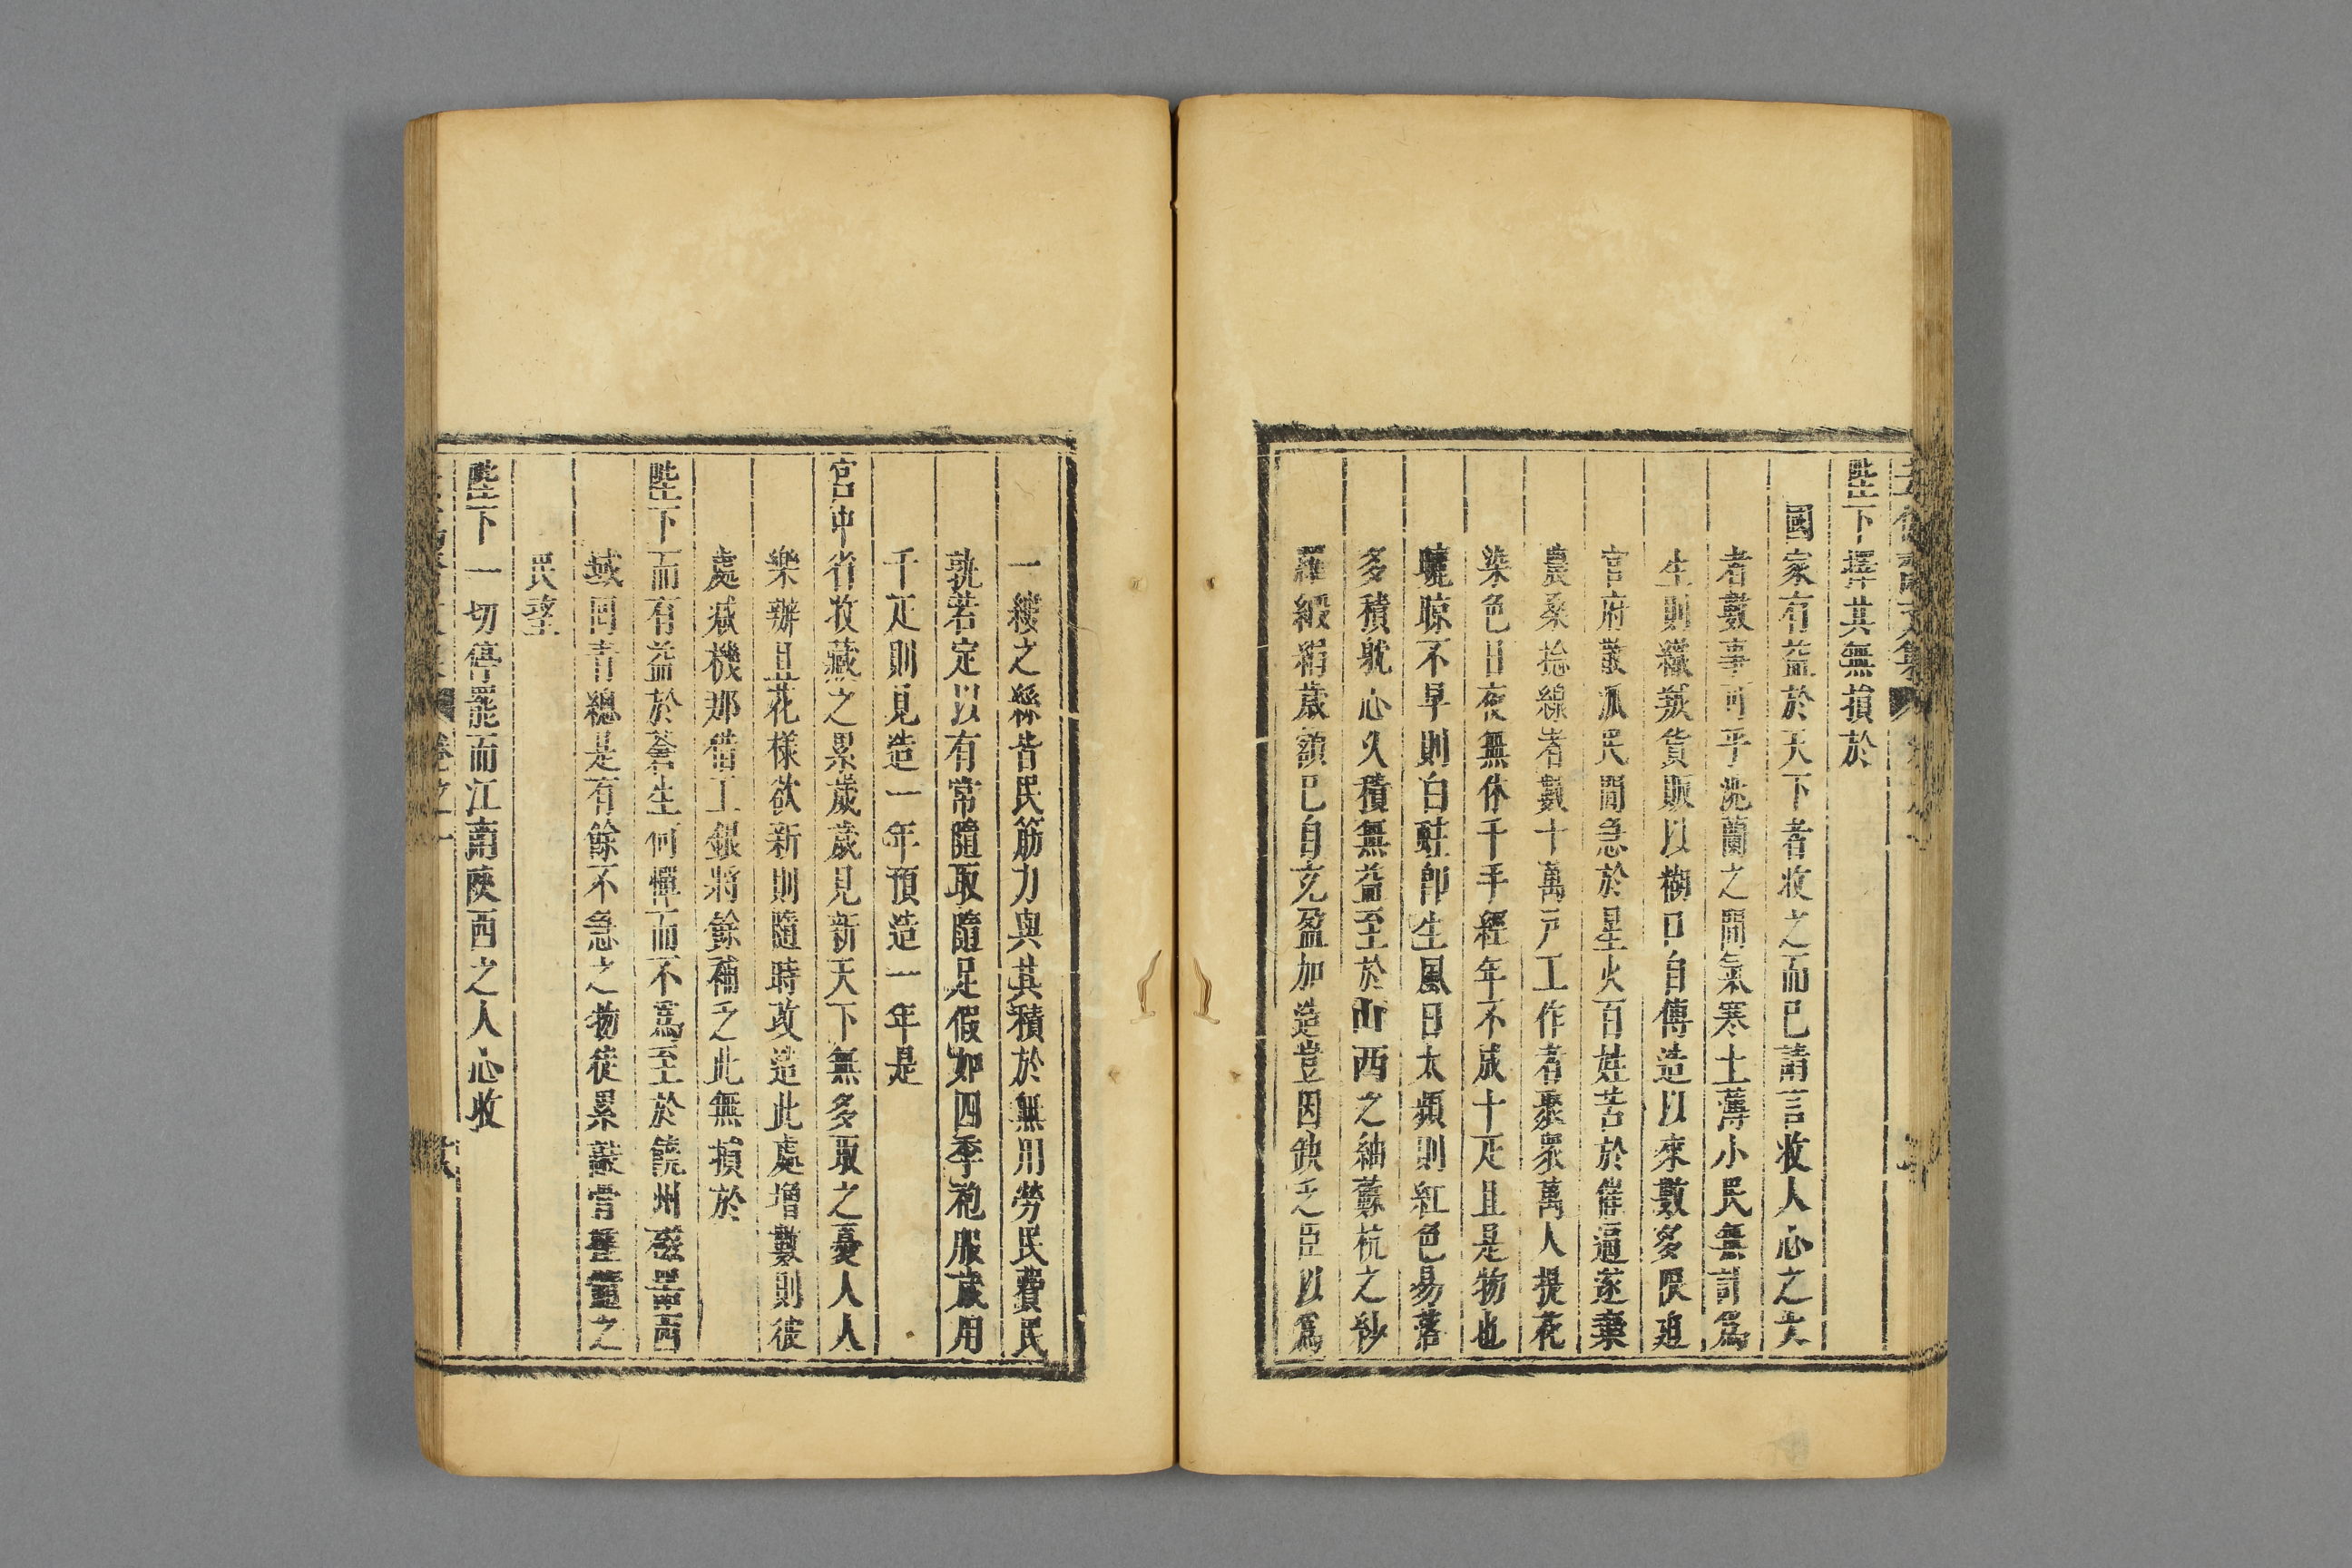 陛下擇其無損於
國家有益於天下者收之而已請言收人心之大
者數事可乎洮蘭之間氣寒土薄小民無計爲
生則織羢貨販以糊口自傳造以來數多限迫
官府嚴派民間急於星火百姓苦於催逼遂棄
農桑捻線者數十萬戸工作者聚衆萬人提花
染色日夜無休千手經年不成十疋且是物也
曬晾不早則白蛀卽生風日太頻則紅色易落
多積躭心久積無益至於山西之紬蘇杭之紗
羅緞絹歲額已自充盈加造豈因缺乏臣以爲
一縷之絲皆民筋力與其積於無用勞民費民
孰若定以有常隨取隨足假如四季袍服歲用
千疋則見造一年預造一年是
宮中省收藏之累歲歲見新天下無多取之憂人人
樂辦且花樣欲新則隨時改造此處增數則彼
處減機那借工銀將餘補乏此無損於
陛下而有益於蒼生何憚而不爲至於饒州磁器西
域回青總是有餘不急之物徒累
民望
陛下一切停罷而江南陝西之人心收
卷之一